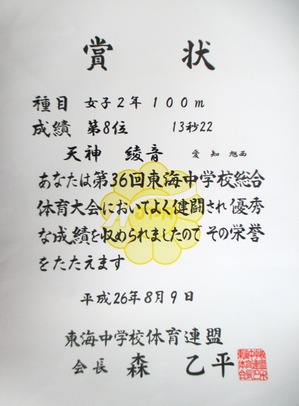 賞状
種目 女子2年 100m
成績 第8位 13秒22
天神 綾音 愛知 旭西
あなたは第36回東海中学校総合
体育大会においてよく健闘され優秀
な成績を収められましたのでその栄誉
をたたえます
平成26年8月9日
東海中学校体育連盟
会長 森 乙平